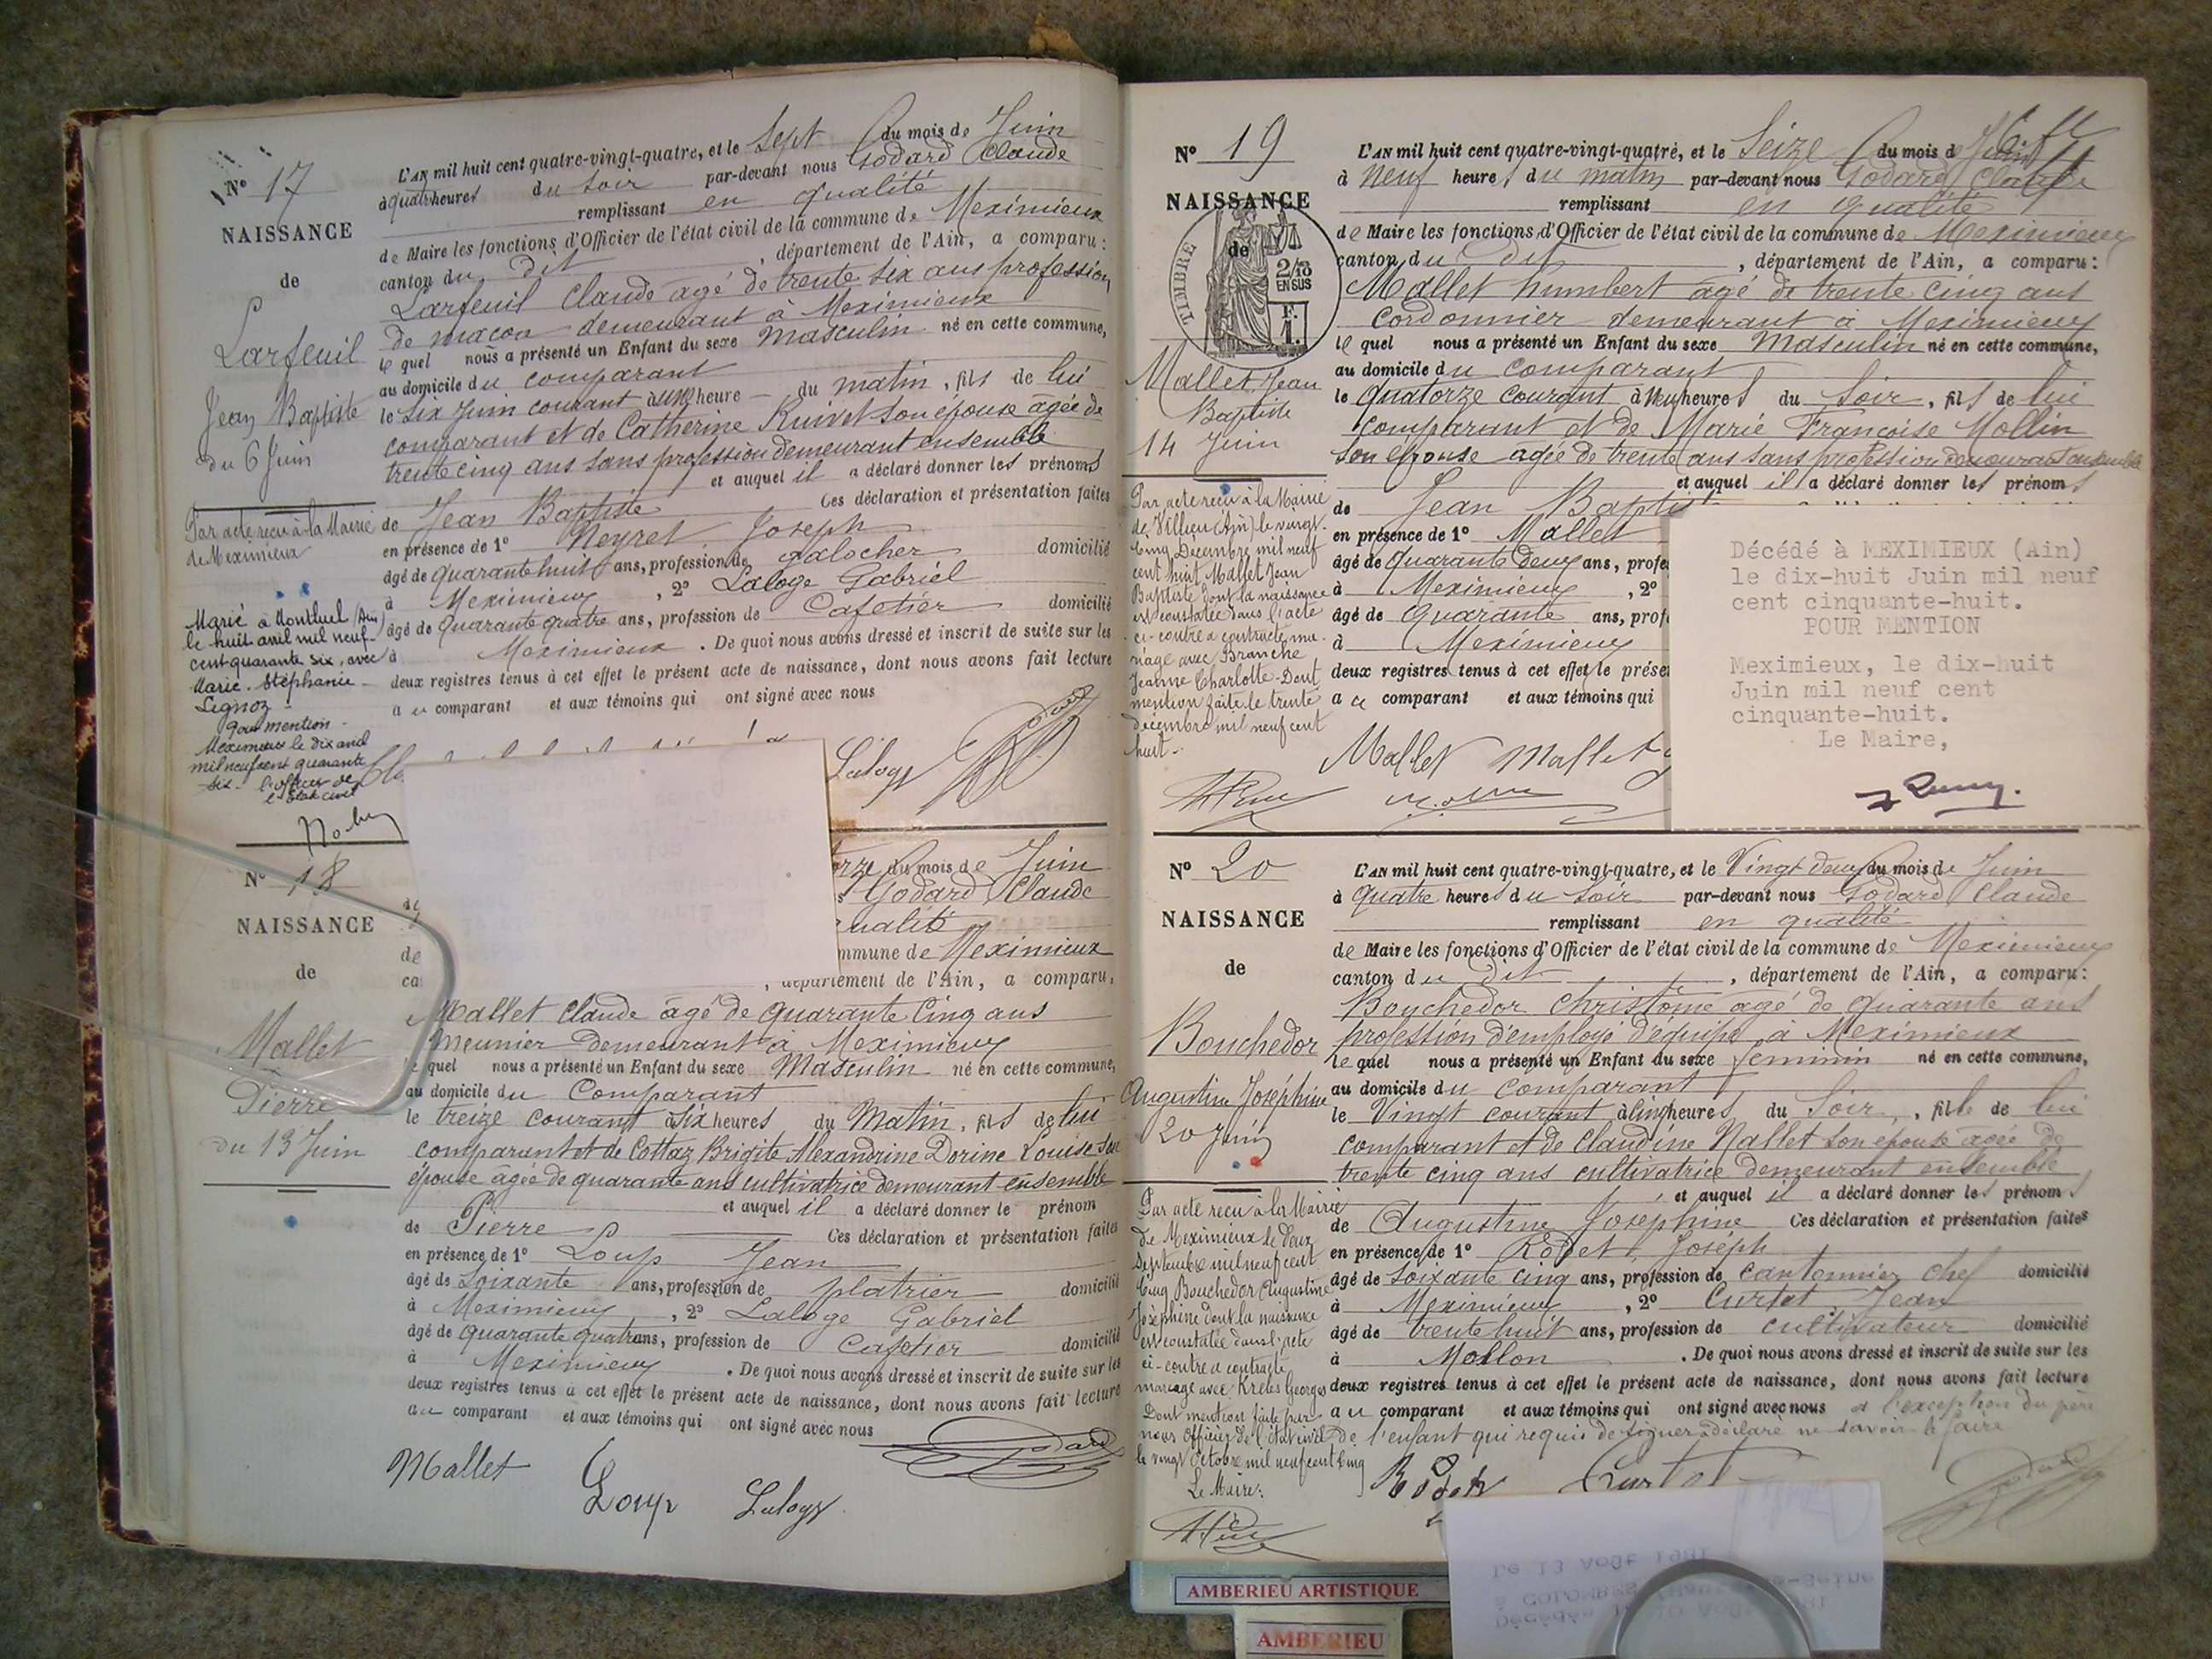 N° 17
NAISSANCE
de
Larfeuil
Jean Baptiste
du 6 Juin
Par acte reçu à la Mairie
de Meximieux
Marié à Montluel (Ain)
le huit avril mil neuf
cent quarante six, avec
Marie-Stéphanie
Lignoz
pour mention
Meximieux le dix avril
mil neuf cent quarante
six. l'officier de
l'état civil
L'AN mil huit cent quatre-vingt-quatre, et le Sept du mois de Juin
à quatre heures du Soir par-devant nous Godard Claude
remplissant en qualité
de Maire les fonctions d'Officier de l'état civil de la commune de Meximieux
canton du Dit, département de l'Ain, a comparu:
Larfeuil Claude agé de trente six ans profession
de maçon demeurant à Meximieux
le quel nous a présenté un Enfant du sexe Masculin né en cette commune,
au domicile du comparant
le six Juin courant à une heure du matin, fils de lui
comparant et de Catherine Ruivet son épouse agée de
trente cinq ans sans profession demeurant ensemble
et auquel il a déclaré donner les prénoms
de Jean Baptiste Ces déclaration et présentation faites
en présence de 1° Neyret Joseph
âgé de quarante huit ans, profession de galocher domicilié
à Meximieux, 2° Laloge Gabriel
âgé de quarante quatre ans, profession de Cafetier domicilié
à Meximieux. De quoi nous avons dressé et inscrit de suite sur les
deux registres tenus à cet effet le présent acte de naissance, dont nous avons fait lecture
au comparant et aux témoins qui ont signé avec nous
Laloge
N° 18
NAISSANCE
de
Mallet
Pierre
du 13 Juin
du mois de Juin
Godard Claude
qualité
commune de Meximieux
, département de l'Ain, a comparu,
Mallet Claude agé de quarante cinq ans
meunier demeurant à Meximieux
le quel nous a présenté un Enfant du sexe Masculin né en cette commune,
au domicile du Comparant
le treize courant à six heures du Matin, fils de lui
comparant et de Cottaz Brigite Alexandrine Dorine Louise son
épouse agée de quarante ans cultivatrice demeurant ensemble
et auquel il a déclaré donner le prénom
de Pierre Ces déclaration et présentation faites
en présence de 1° Loup Jean
âgé de Soixante ans, profession de platrier domicilié
à Meximieux, 2° Laloge Gabriel
âgé de quarante quatre ans, profession de Cafetier domicilié
à Meximieux. De quoi nous avons dressé et inscrit de suite sur les
deux registres tenus à cet effet le présent acte de naissance, dont nous avons fait lecture
au comparant et aux témoins qui ont signé avec nous
Mallet Loup Laloge
N° 19
NAISSANCE
de
TIMBRE
2/10
EN SUS
F.
1.
Mallet Jean
Baptiste
14 Juin
Par acte reçu à la Mairie
de Villieu (Ain) le vingt
cinq Décembre mil neuf
cent huit, Mallet Jean
Baptiste dont la naissance
est constatée dans l'acte
ci-contre a contracté ma-
riage avec Branche
Jeanne Charlotte. Dont
mention faite le trente
décembre mil neuf cent
huit.
L'AN mil huit cent quatre-vingt-quatre, et le Seize du mois de Juin
à neuf heures du matin par-devant nous Godard Claude
remplissant en qualité
de Maire les fonctions d'Officier de l'état civil de la commune de Meximieux
canton du Dit, département de l'Ain, a comparu:
Mallet humbert agé de trente cinq ans
Cordonnier demeurant à Meximieux
le quel nous a présenté un Enfant du sexe Masculin né en cette commune,
au domicile du comparant
le quatorze courant à heures du Soir, fils de lui
comparant et de Marie Françoise Mollin
son épouse agée de trente ans sans profession demeurant ensemble
et auquel il a déclaré donner les prénoms
de Jean Baptis
en présence de 1° Mallet
âgé de quarante deux ans, profe
à Meximieux, 2°
âgé de quarante ans, prof
à Meximieux
deux registres tenus à cet effet le prése
au comparant et aux témoins qui
Mallet Mallet
Décédé à MEXIMIEUX (Ain)
le dix-huit Juin mil neuf
cent cinquante-huit.
POUR MENTION
Meximieux, le dix-huit
Juin mil neuf cent
cinquante-huit.
Le Maire,
N° 20
NAISSANCE
de
Bouchedor
Augustine Joséphine
20 Juin
Par acte reçu à la Mairie
de Meximieux le deux
Septembre mil neuf cent
cinq Bouchedor Augustine
Joséphine dont la naissance
est constatée dans l'acte
ci-contre a contracté
mariage avec Kreles Georges
Dont mention faite par
nous Officier de l'état civil
le vingt Octobre mil neuf cent cinq
Le Maire:
L'AN mil huit cent quatre-vingt-quatre, et le Vingt deux du mois de Juin
à quatre heures du soir par-devant nous Godard Claude
remplissant en qualité
de Maire les fonctions d'Officier de l'état civil de la commune de Meximieux
canton du Dit, département de l'Ain, a comparu:
Bouchedor Christôme agé de quarante ans
profession d'employé d'équipe à Meximieux
le quel nous a présenté un Enfant du sexe féminin né en cette commune,
au domicile du comparant
le Vingt courant à cinq heures du Soir, fille de lui
comparant et de Claudine Nallet son épouse agée de
trente cinq ans cultivatrice demeurant ensemble
et auquel il a déclaré donner les prénoms
de Augustine Joséphine Ces déclaration et présentation faites
en présence de 1° Rodet Joseph
âgé de soixante cinq ans, profession de cantonnier chef domicilié
à Meximieux, 2° Curtat Jean
âgé de trente huit ans, profession de cultivateur domicilié
à Mollon. De quoi nous avons dressé et inscrit de suite sur les
deux registres tenus à cet effet le présent acte de naissance, dont nous avons fait lecture
au comparant et aux témoins qui ont signé avec nous à l'exception du père
de l'enfant qui requis de signer a déclaré ne savoir le faire
Rodet Curtat
AMBERIEU ARTISTIQUE
AMBERIEU